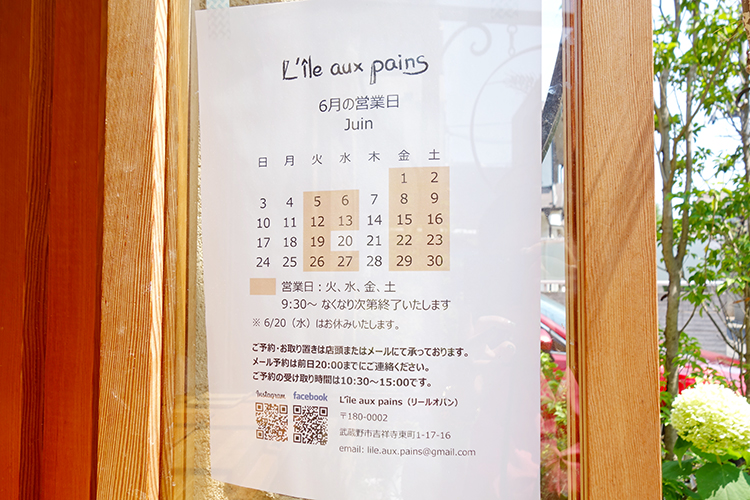 L'île aux pains
6月の営業日
Juin
日 月 火 水 木 金 土
1 2
3 4 5 6 7 8 9
10 11 12 13 14 15 16
17 18 19 20 21 22 23
24 25 26 27 28 29 30
営業日：火、水、金、土
9:30～ なくなり次第終了いたします
※ 6/20（水）はお休みいたします。
ご予約・お取り置きは店頭またはメールにて承っております。
メール予約は前日20:00までにご連絡ください。
ご予約の受け取り時間は10:30～15:00です。
Instagram facebook L'île aux pains（リールオパン）
〒180-0002
武蔵野市吉祥寺東町1-17-16
email: lile.aux.pains@gmail.com